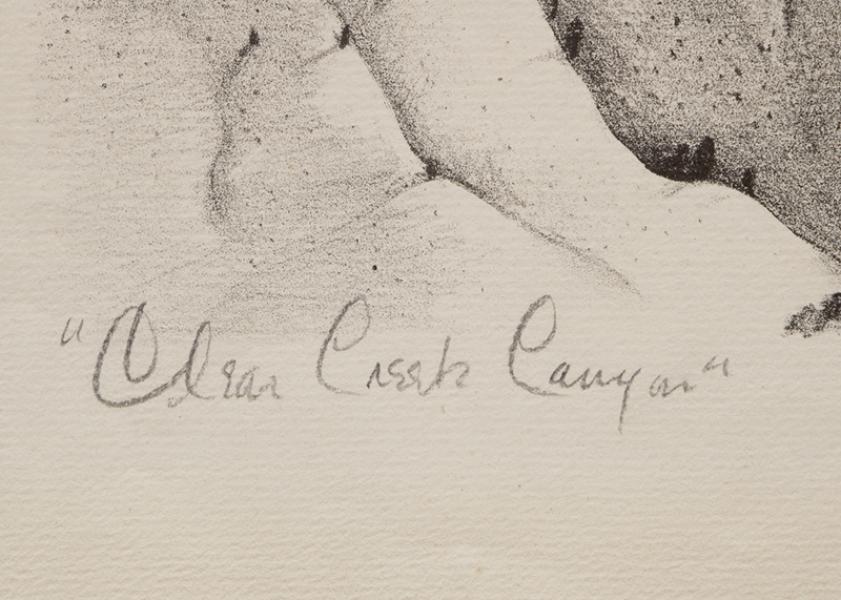 "Clear Creek Canyon"